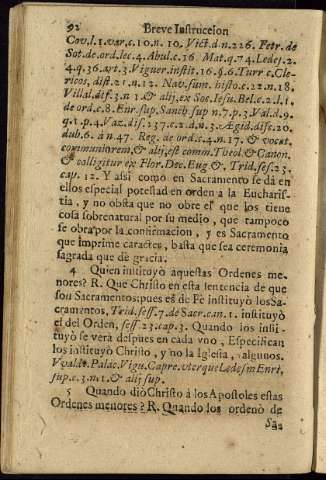 92 Breve Instruccion
Cov.l.1.var.c.10.n.10. Vict.d.n.226. Petr.de
Sot.de ord.lec.4. Abul.c.16. Mat.q.74. Ledes.2.
4.q.36.art.3. Viguer.instit.16.§.6. Turr.c.Cle-
ricos, dist.21.n.12. Nav.sum. histo.c.22.n.18.
Villal.dif.3.n.1. & alij, ex Soc.Iesu. Bel.c.2.l.1.
de ord.c.8. Enr.sup. Sanch.sup n.7.p.3.Val.d.9.
q.1.p.4. Vaz.dis.237.c.2.d.n.3. Ægid.dis.20.
dub.6. à n.47. Reg. de ord.c.4.n.17. & vocat.
communiorem, & alij, est comm. Theol & Canon.
& colligitur ex Flor. Dec. Eug &. Trid. ses.23.
cap. 12. Y assi como en Sacramento se dà en
ellos especial potestad en orden a la Eucharis-
tia, y no obsta que no obre el que los tiene
cosa sobrenatural por su medio, que tampoco
se obra por la confirmacion, y es Sacramento
que imprime caracter, basta que sea ceremonia
sagrada que dè gracia.
4 Quien instituyò aquestas Ordenes me-
nores? R. Que Christo en esta sentencia de que
son Sacramentos: pues es de Fè instituyò los Sa-
cramentos, Trid. sess.7. de Sacr. can.1. instituyò
el del Orden, sess.23. cap.3. Quando los insti-
tuyò se verà despues en cada vno, Especifican
los instituyò Christo, y no la Iglesia, algunos.
Vvald. Palac. Vigu. Capre. vterque Ledes in Enri,
sup.c.3.n.1. & alij sup.
5 Quando diò Christo á los Apostoles estas
Ordenes menores? R. Quando los ordenò de
Sa-